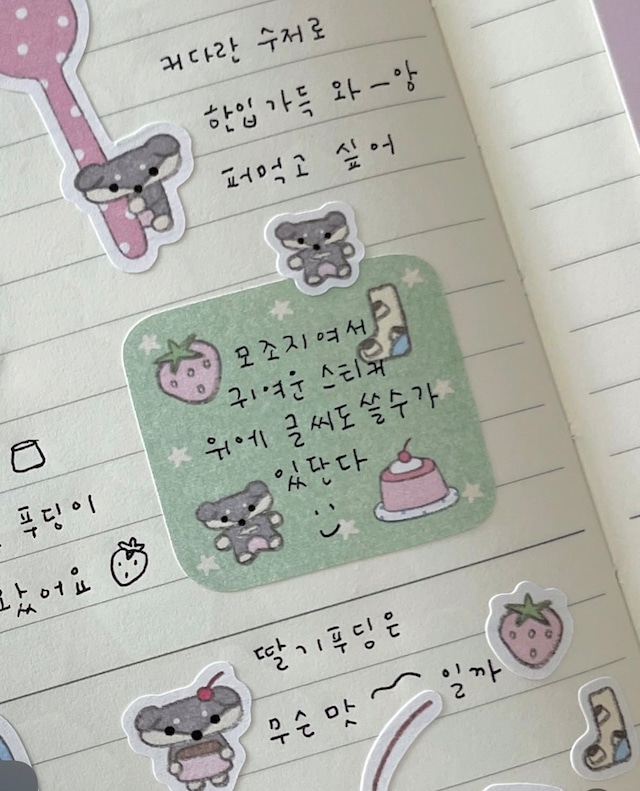 커다란 수저로
한입 가득 와ㅡ앙
퍼먹고 싶어
모조지여서
귀여운 스티커
위에 글씨도 쓸수가
있단다
푸딩이
왔어요
딸기푸딩은
무슨 맛 일까